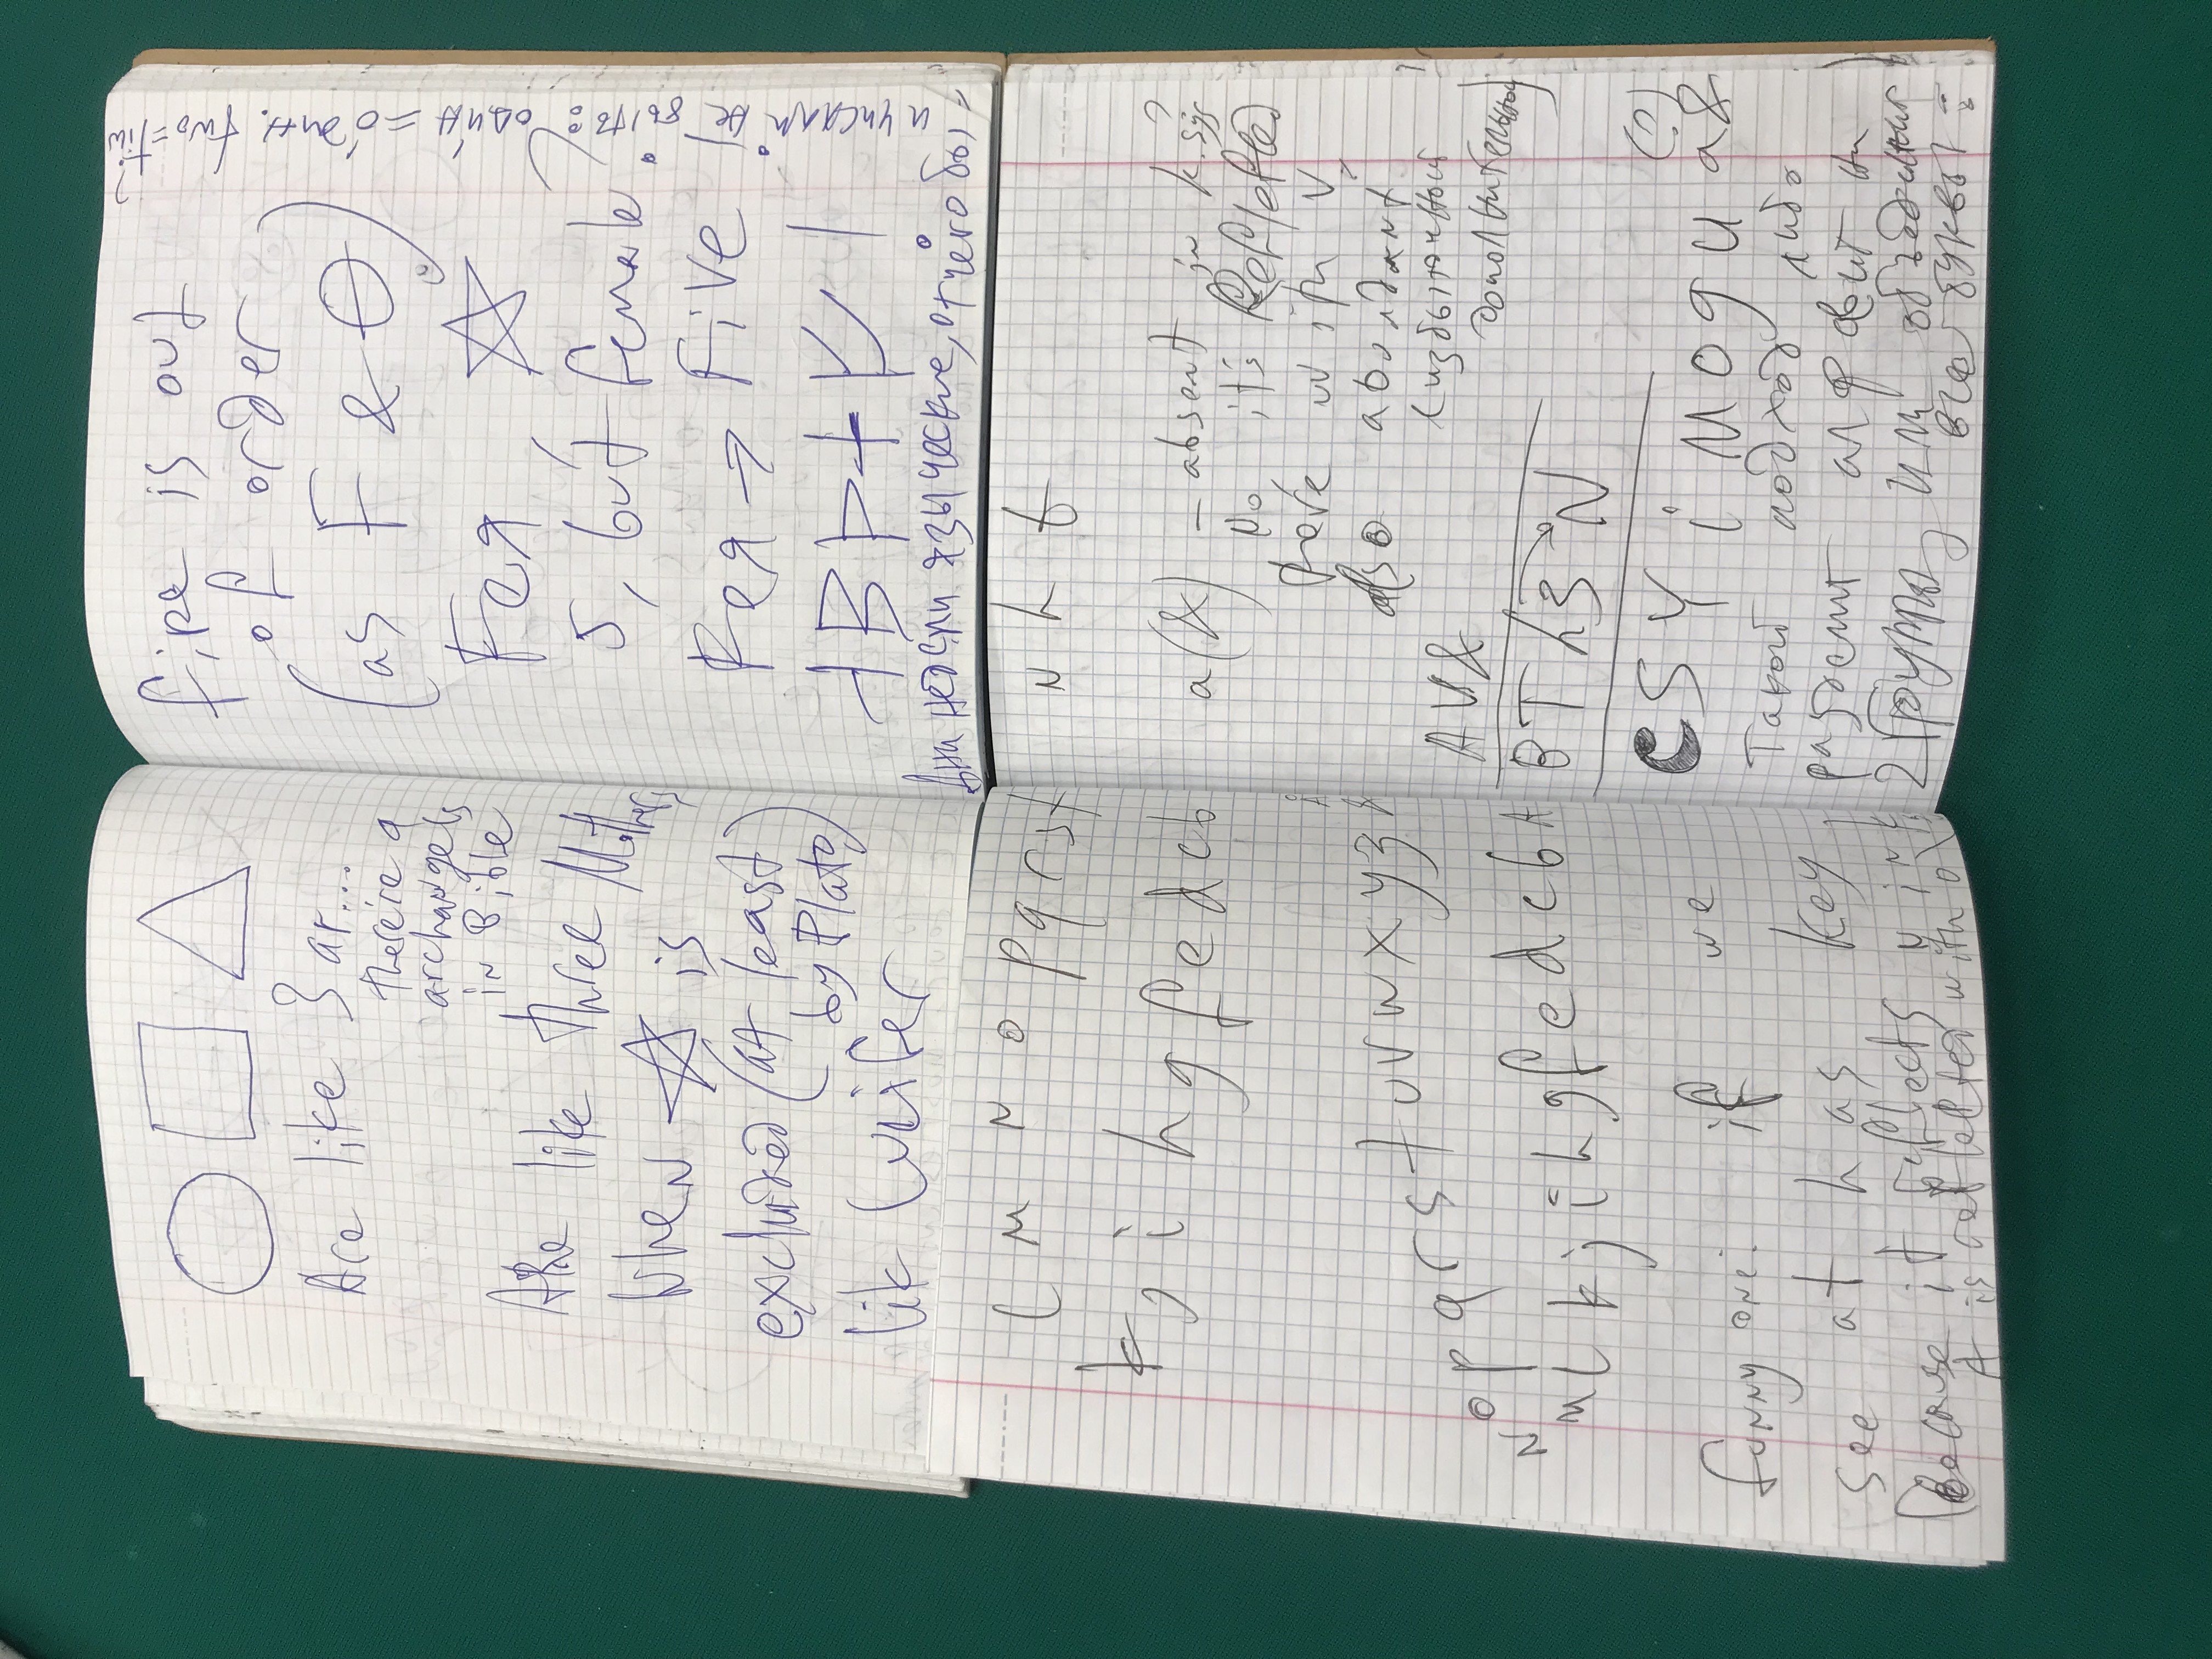 Are like 3 ar...
there're 9
archangels
in Bible
Are like three Mothers,
When is
excluded (at least
by Plato)
lik Lucifer
fire is out
of order
(as F & Θ)
Feя,
5, but female
Feя → Five
Дни недели языческие, отчего бы,
и числам не быть? один = Один. two = tiw?
l m n o p q r s t
k j i h g f e d c b
n o p q r s t u v w x y z &
m l k j i h g f e d c b A
funny one: if we
see at h as key
(Because it reflects n in k.
A is reflected with o
n h t
a(&) – absent in k. sys?
No, it's Reflefted
there with V,
also abundant
(избыточной
дополнительной)
A V &
B T h 3 N
C S Y i M o g u a &
(?)
Такой подход либо
разделит алфавит на
2 группы, или объединит
все буквы :